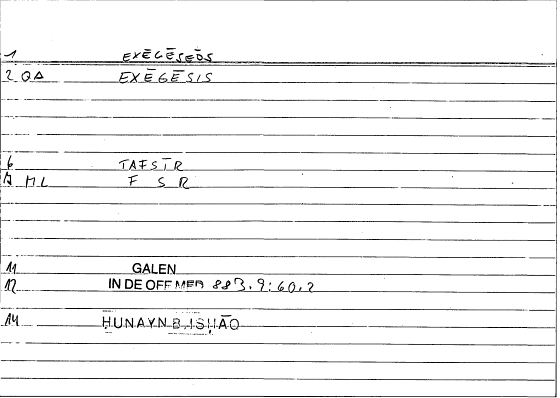 1 EXĒGĒSEŌS
2 QA EXĒGĒSIS
6 TAFSĪR
7 ML F S R
11 GALEN
12 IN DE OFF MED 883.9:60.2
14 ḤUNAYN B. ISḤĀQ